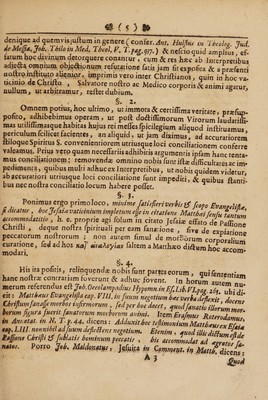 ( 5 )
denique ad quem vis justum in genere (confer. Ant. Hulsius in Theolog. Jud.
de Messia, Joh. Thilo in Med. Theol. V. T. pag. 917.) & nescio quid amplius, ef-
fatum hoc divinum detorquere conantur, cum & res hæc ab Interpretibus
adjecta omnium objectionum refutatione satis jam sit exposita & a præsenti
nostro instituto alienior, imprimis vero inter Christianos, quin in hoc va-
ticinio de Christo, Salvatore nostro ac Medico corporis & animi agatur,
nullum, ut arbitramur, restet dubium.
§. 2.
Omnem potius, hoc ultimo, ut immota & certissima veritate, præsup-
posito, adhibebimus operam, ut post doctissimorum Virorum laudatissi-
mas utilissimasque habitas hujus rei messes spicilegium aliquod instituamus,
periculum scilicet facientes, an aliquid, ut jam diximus, ad accuratiorem
stiloque Spiritus S. convenientiorem utriusque loci conciliationem conferre
valeamus. Prius vero quam necessariis adhibitis argumentis ipsam hanc tenta-
mus conciliationem; removenda omnino nobis sunt istæ difficultates ac im-
pedimenta, quibus multi adhuc ex Interpretibus, ut nobis quidem videtur,
ab accuratiori utriusque loci conciliatione sunt impediti, & quibus stanti-
bus nec nostra conciliatio locum habere posset.
§. 3.
Ponimus ergo primo loco, minime satisfieri verbis & scopo Evangelistæ,
si dicatur, hoc Jesaiæ vaticinium impletum esse in citatione Matthæi sensu tantum
accommodatitio, h. e. proprie agi solum in citato Jesaiæ effato de Passione
Christi, deque nostra spirituali per eam sanatione, sive de expiatione
peccatorum nostrorum; non autem simul de morborum corporalium
curatione, sed ad hos κατ' ἀναλογίαν saltem a Matthæo dictum hoc accom-
modari.
§. 4.
His ita positis, relinquendæ nobis sunt partes eorum, qui sententiam
hanc nostræ contrariam foverunt & adhuc fovent. In horum autem nu-
merum referendus est Joh. Oecolampadius Hypomn. in Es. Lib. VI. pag. 261. ubi di-
cit: Matthæus Evangelista cap. VIII. in suum negotium hæc verba deflexit, docens
Christum sanasse morbos infirmorum, sed per hoc docet, quod sanatis illorum mor-
borum figura fuerit sanatorum morborum animi. Item Erasmus Roterodamus,
in Annotat. in N. T. p. 44. dicens: Adduxit hoc testimonium Matthæus ex Esaia
cap. LIII. nonnihil ad suum deflectens negotium. Etenim, quod illic dictum est de
Passione Christi & sublatis hominum peccatis, his accommodat ad ægrotos sa-
natos. Porro Joh. Maldonatus, Jesuita in Comment. in Matth. dicens:
A 3
Quod